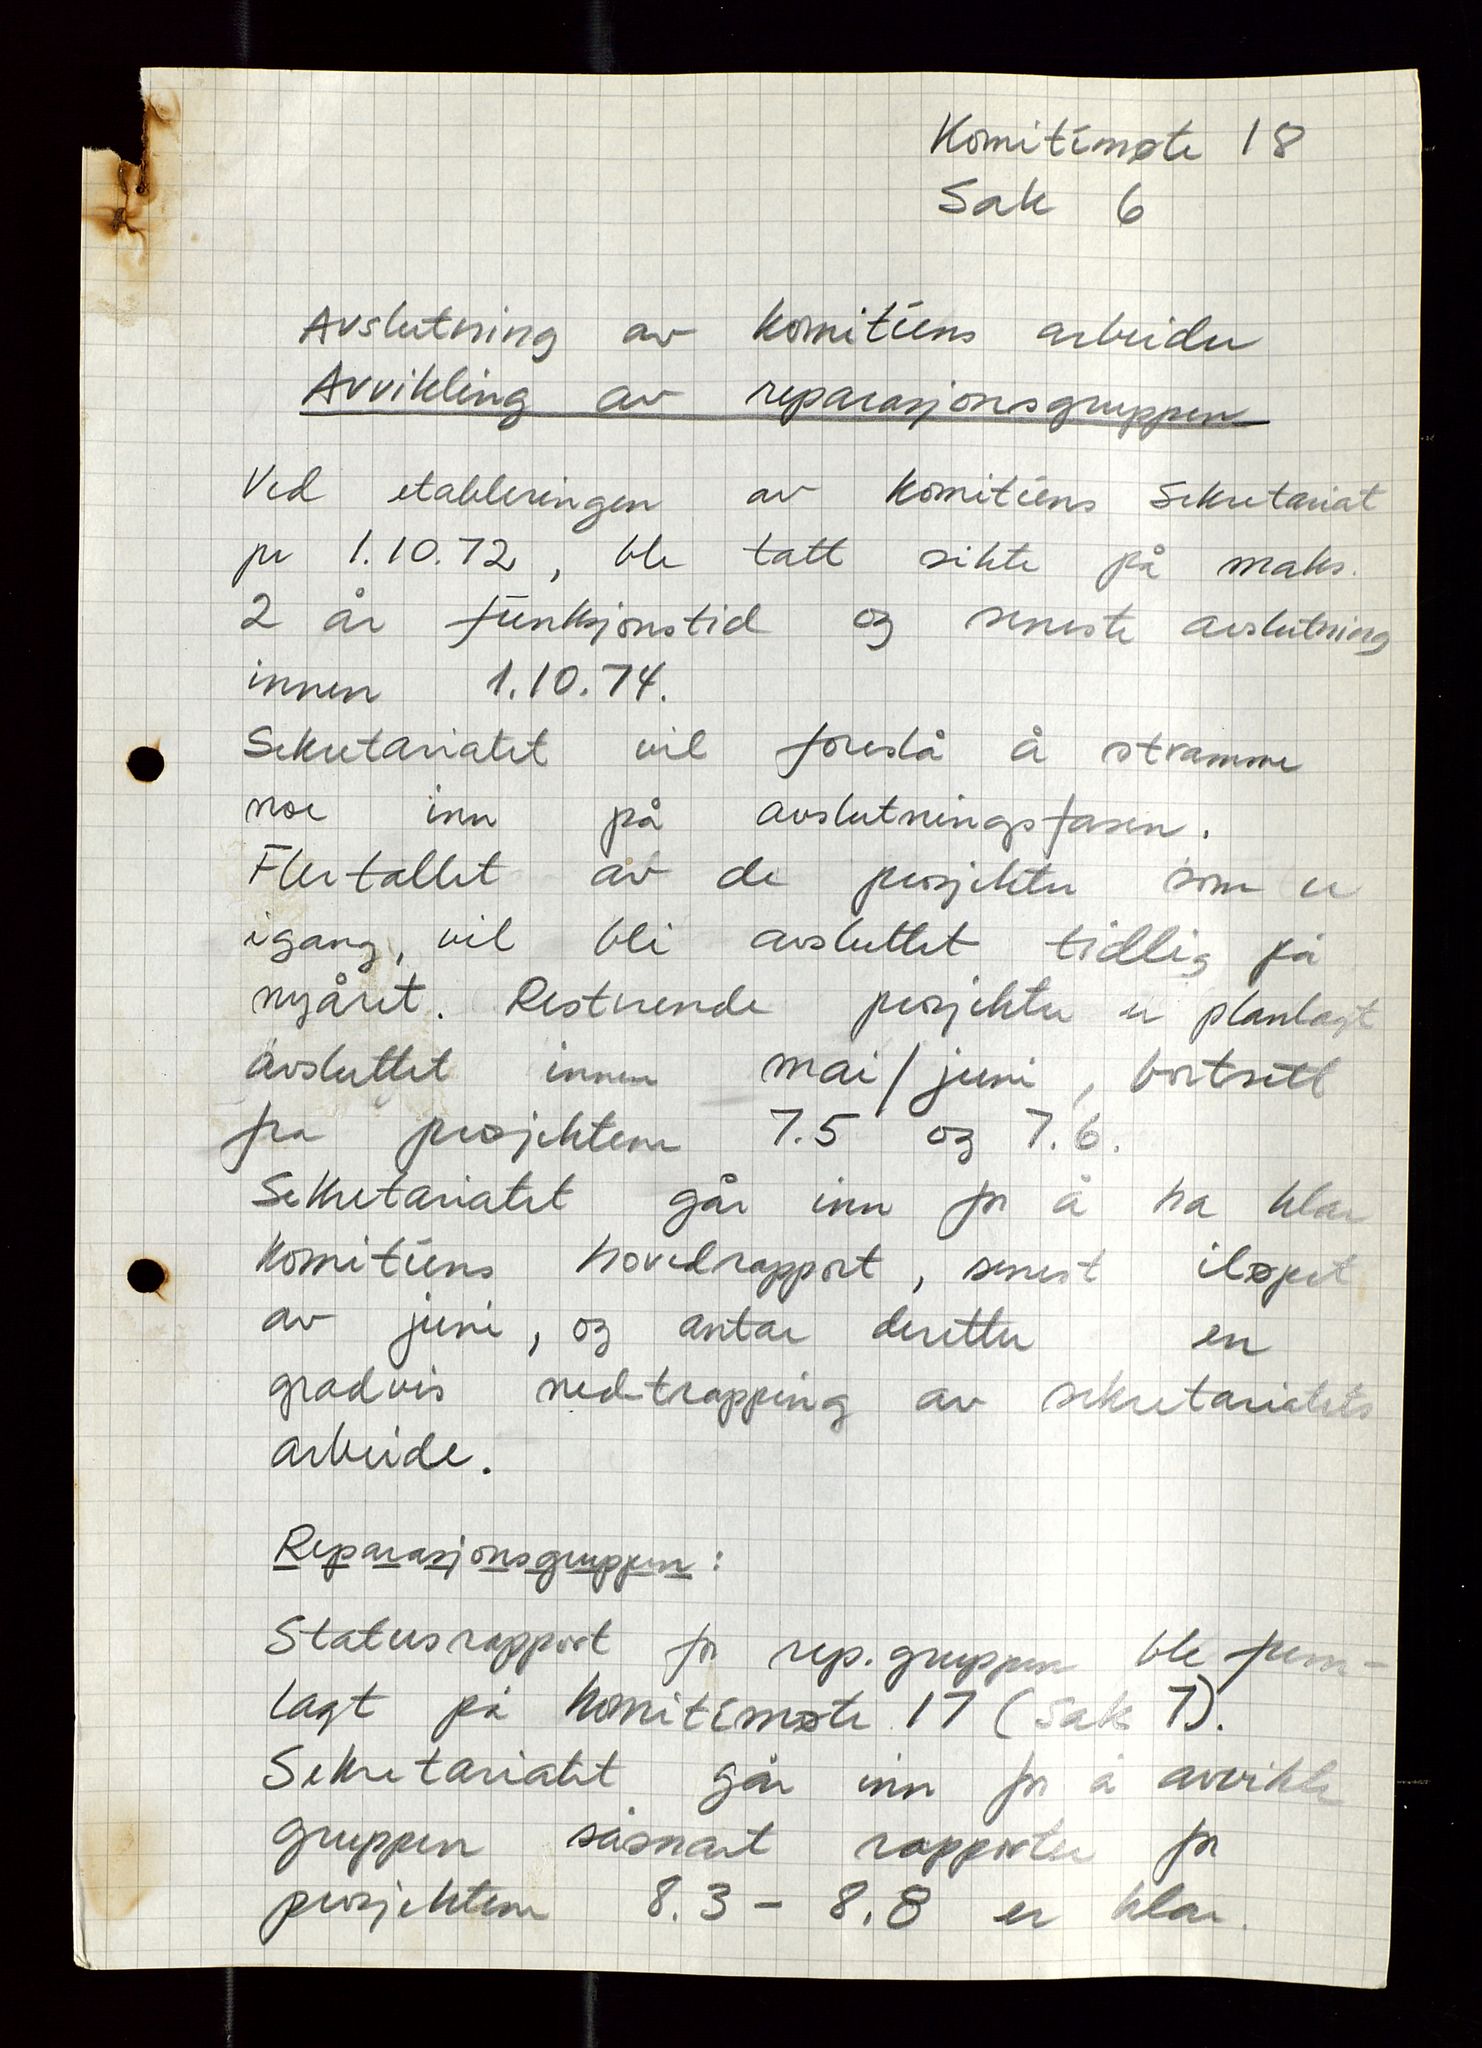 Komitémøte 18
Sak 6
Avslutning av komitéens arbeider
Avvikling av reparasjonsgruppen
Ved etableringen av komitéens sekretariat
pr 1.10.72, ble tatt sikte på maks.
2 år funksjonstid og seneste avslutning
innen 1.10.74.
Sekretariatet vil foreslå å stramme
noe inn på avslutningsfasen.
Flertallet av de prosjekter som er
igang, vil bli avsluttet tidlig på
nyåret. Resterende prosjekter er planlagt
avsluttet innen mai/juni, bortsett
fra prosjektene 7.5 og 7.6.
Sekretariatet går inn for å ha klar
komitéens hovedrapport, senest iløpet
av juni, og antar deretter en
gradvis nedtrapping av sekretariatets
arbeide.
Reparasjonsgruppen:
Statusrapport for rep.gruppen ble frem-
lagt på komitémøte 17 (sak 7).
Sekretariatet går inn for å avvikle
gruppen såsnart rapporter for
prosjektene 8.3 - 8.8 er klar.